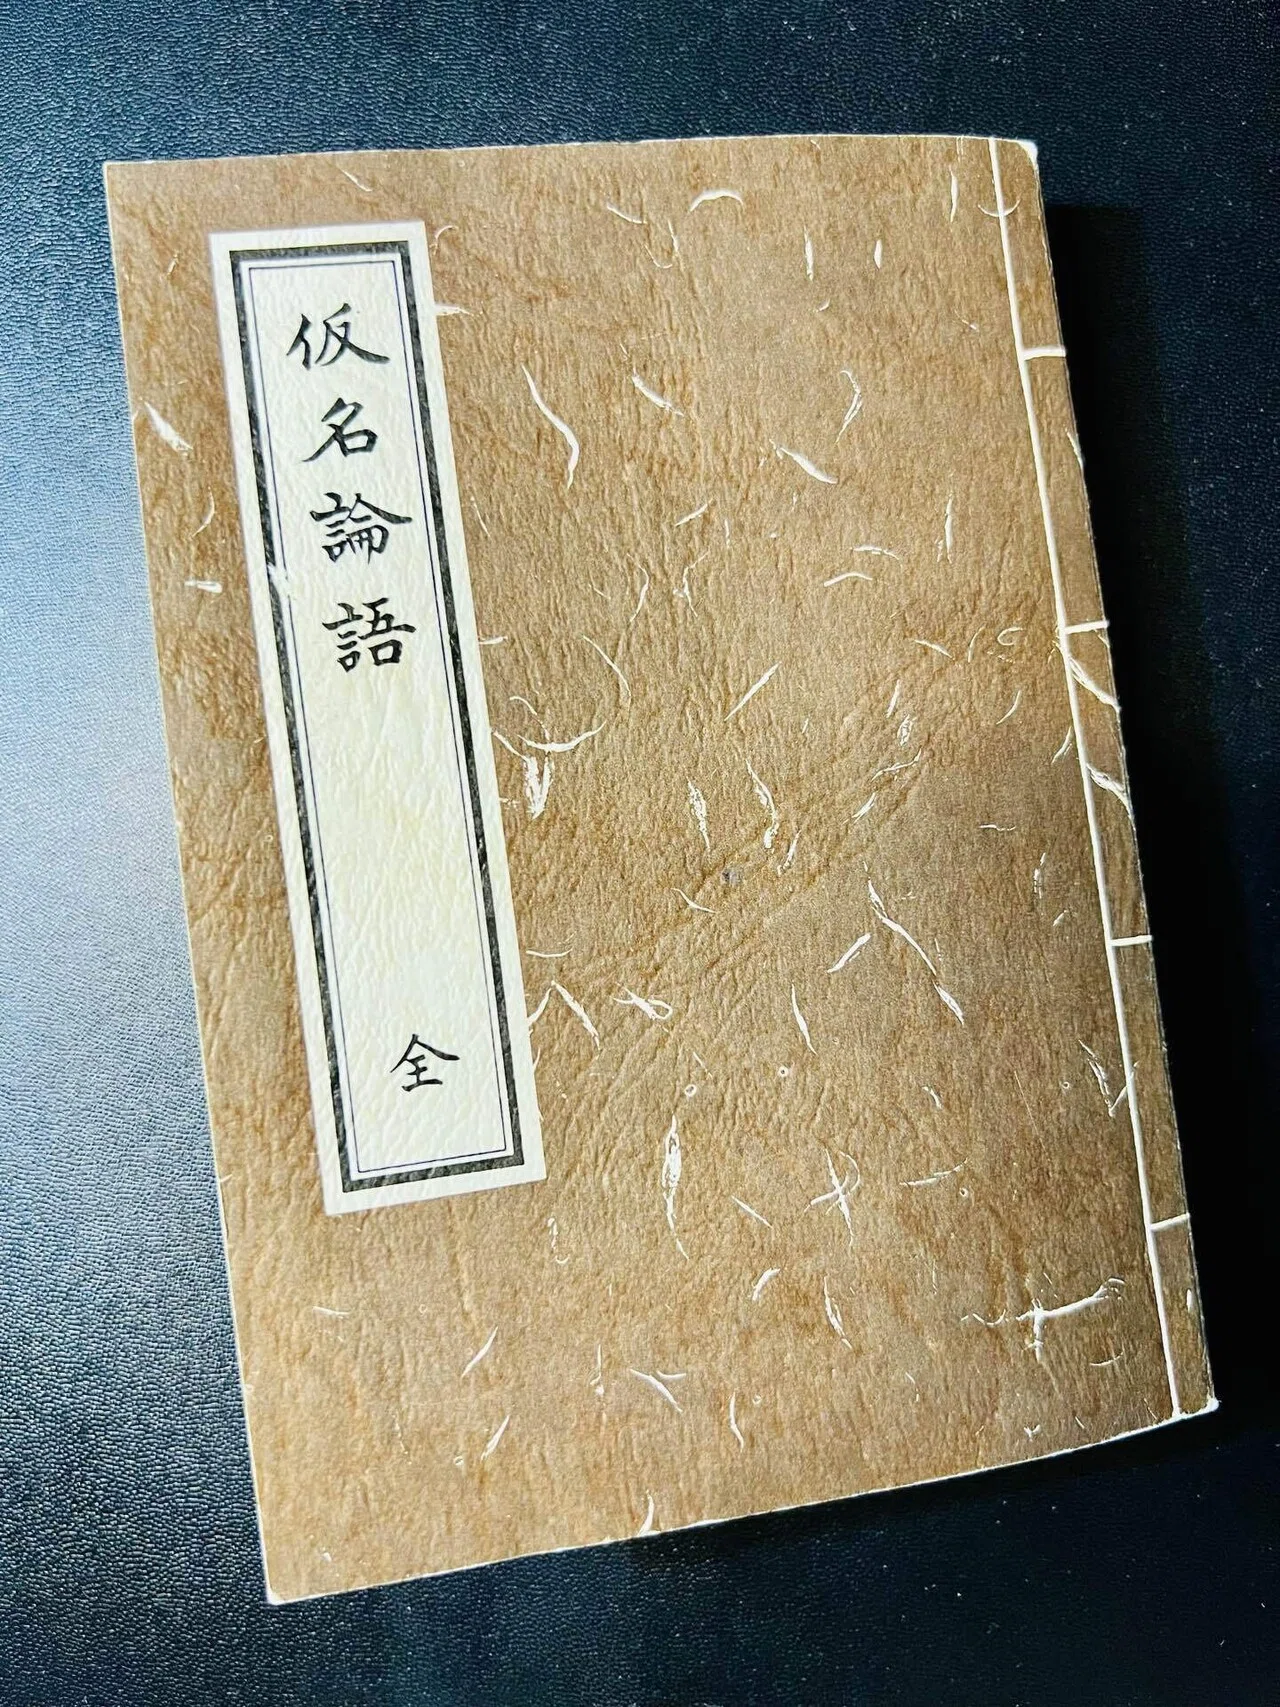 仮名論語
全